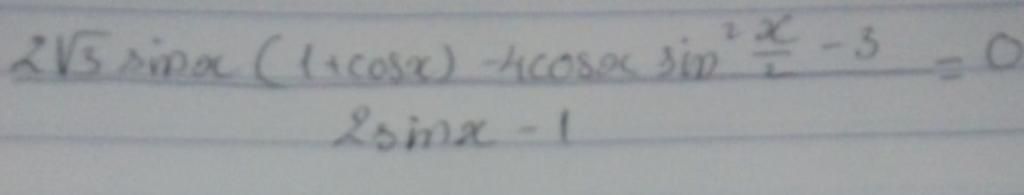 2√3 sinx (1+cosx) - 4cosx sin² x/2 - 3 = 0
2sinx - 1